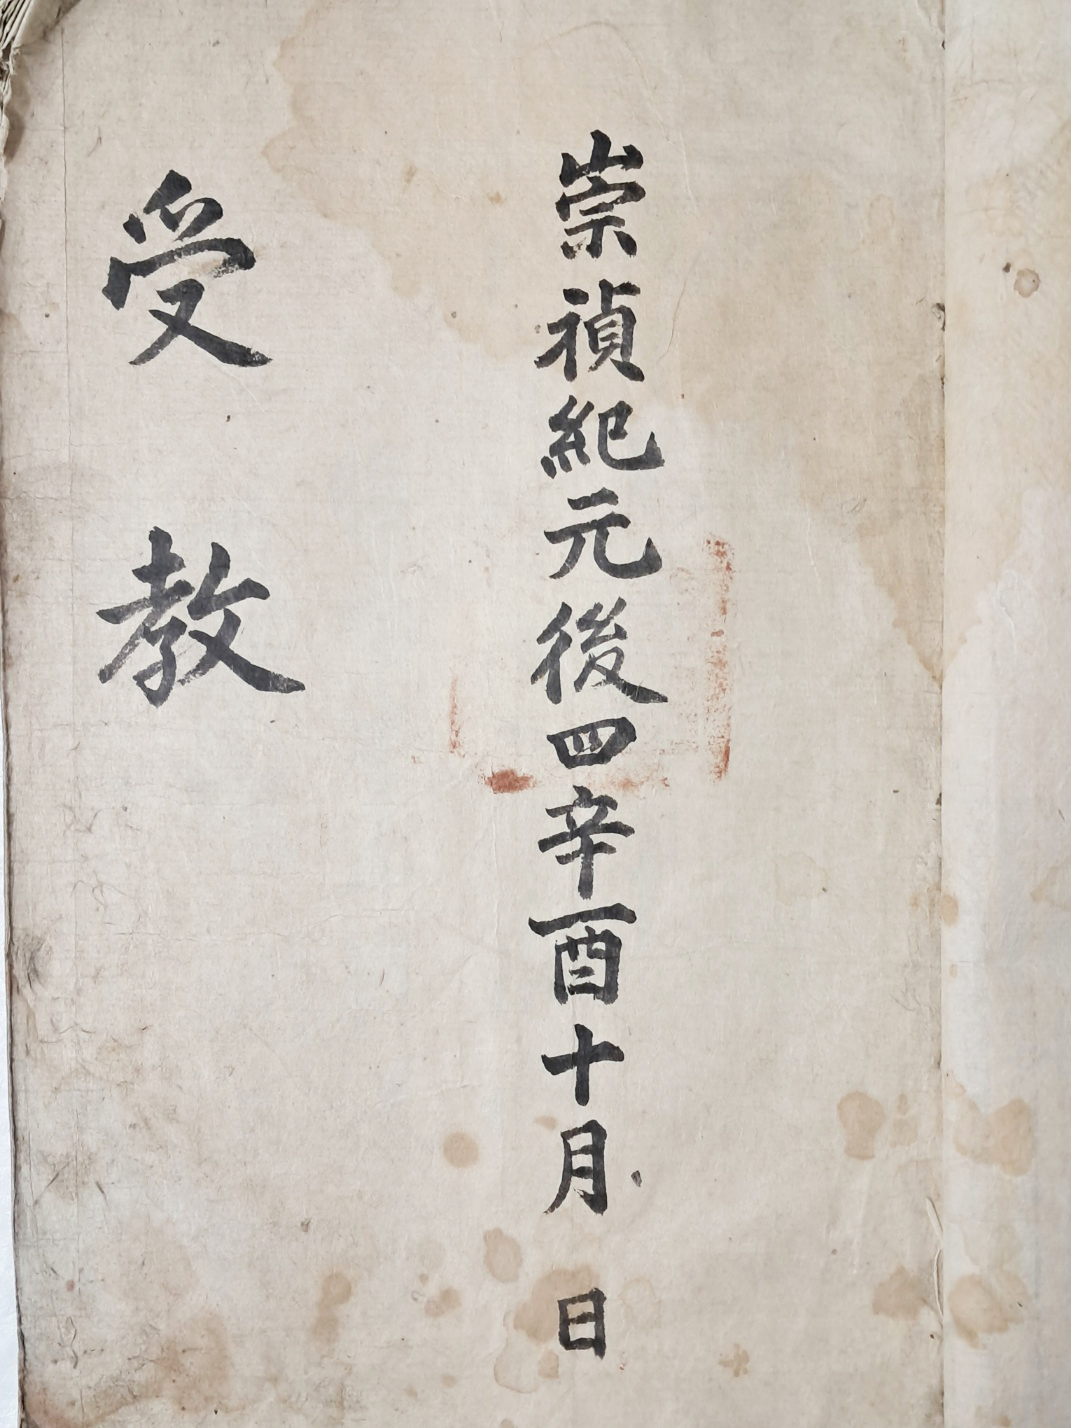 崇禎紀元後四辛酉十月　日
受教